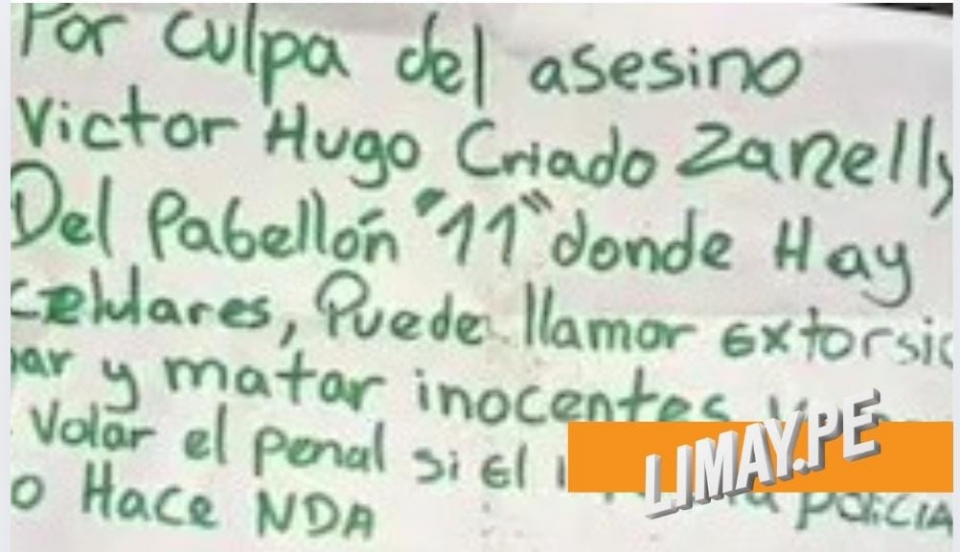 Por culpa del asesino
Victor Hugo Criado Zanelly
Del Pabellón "11" donde Hay
celulares, Puede llamar Extorsio
nar y matar inocentes y
Volar el penal si El
policia
o Hace NDA
LIMAY.PE